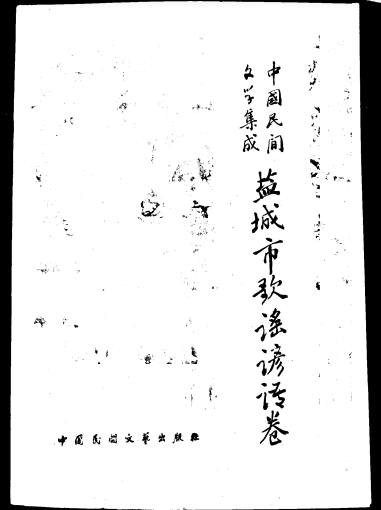 中國民间
文学集成
盐城市歌谣谚语卷
中国民间文艺出版社